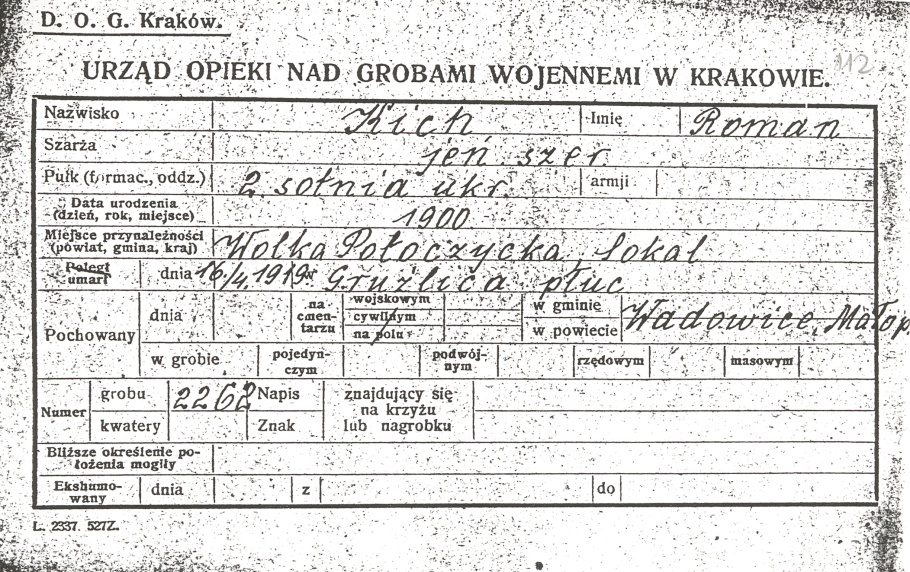 D. O. G. Kraków.
112
URZĄD OPIEKI NAD GROBAMI WOJENNEMI W KRAKOWIE.
Nazwisko Kich Imię Roman
Szarża jeń. szer.
Pułk (formac., oddz.) 2 sotnia ukr. armji
Data urodzenia
(dzień, rok, miejsce) 1900
Miejsce przynależności
(powiat, gmina, kraj) Wolka Połoczycka, Sokal
Poległ
umarł dnia 16/4 1919 w Gruźlica płuc
Pochowany dnia na cmentarzu wojskowym cywilnym na polu w gminie w powiecie Wadowice, Małop
w grobie pojedyńczym podwójnym rzędowym masowym
Numer grobu 2262 Napis znajdujący się
na krzyżu
kwatery Znak lub nagrobku
Bliższe określenie po-
łożenia mogiły
Ekshumo-
wany dnia z do
L. 2337. 527Z.